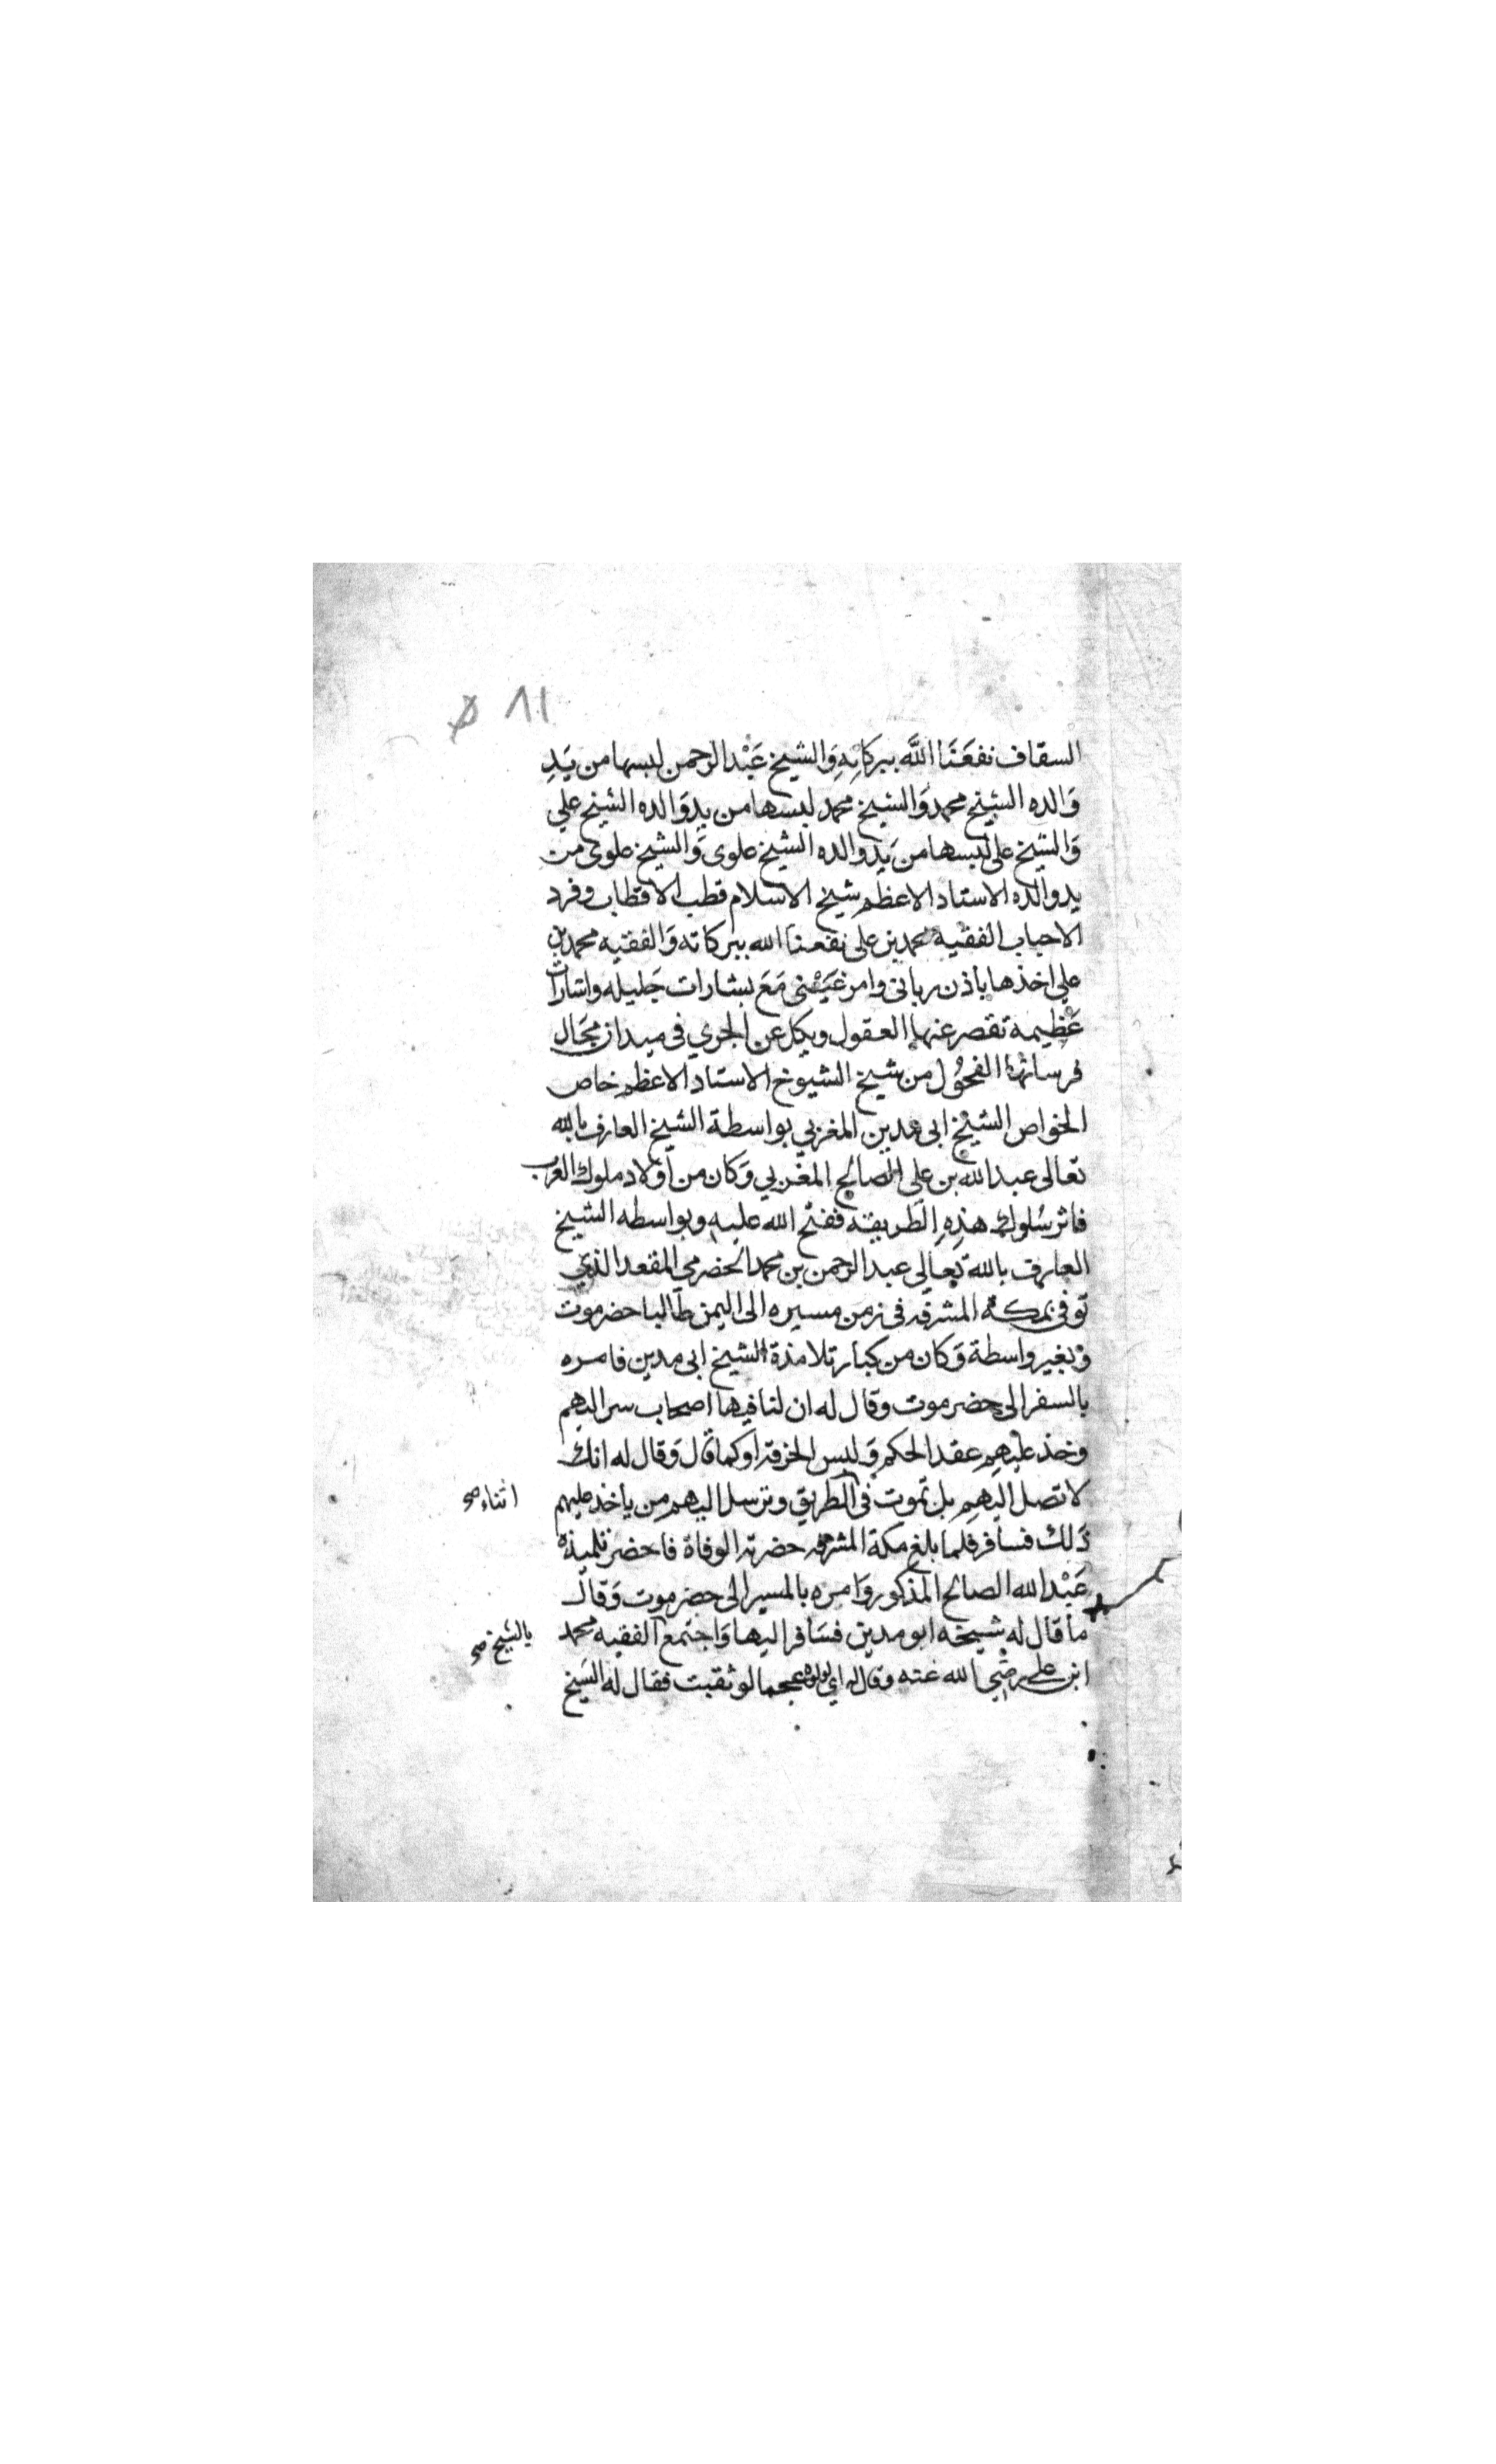 ٨١
السقاف نفعَنَا اللَّه ببركاتِهِ وَالشيخ عَبْد الرحمن لبسها من يَدِ
وَالده الشيخ محمد وَالشيخ محمد لبسها من يدِ وَالده الشيخ علي
وَالشيخ على لبسها من يَدِ والده الشيخ علوى وَالشيخ علوي من
يد والده الاستاد الاعظم شيخ الاسلام قطب الاقطاب وفرد
الاحباب الفقيه محمد بن على نفعنا الله ببركاته وَالفقيه محمد بن
علي اخذها باذن رباني وامر غَيْبى مَعَ بشارات جَليله واشارات
عَظيمة تقصر عنها العقول ويكل عن الجري فى ميدان مجَال
فرسانها الفحُول من شيخ الشيوخ الاستاد الاعظم خاص
الخواص الشيخ ابى مدين المغربي بواسطة الشيخ العارف بالله
تعالى عبد الله بن علي الصالح المغربي وَكان من أولاد ملوك الغرب
فاثر سُلوك هذِهِ الطريقة ففتح الله عليه وبواسطه الشيخ
العارف بالله تعالي عبد الرحمن بن محمد الحضرمي المقعد الذي
توفى بمكة المشرفه فى زمن مسيره الى اليمن طالبا حضرموت
وبغير واسطة وَكان من كبار تلامذة الشيخ ابى مدين فامره
بالسفر الى حضرموت وقال له ان لنا فيها اصحاب سر اليهم
وخذ عليهم عقد الحكم وَلبس الخرقة اوكما قال وَقال له انك
لا تصل اليهم بل تموت فى الطريق وترسل اليهم من ياخذ عليهم
اثناء صح
ذَلك فسافر فلما بلغ مكة المشرفه حضرته الوفاة فاحضر تلميذه
عَبْد الله الصالح المذكور وَامره بالمسير الى حضرموت وَقال
ما قال له شيخه ابو مدين فسَافر اليها وَاجتمع الفقيه محمد
بالشيخ صح
ابن علي رضي الله عنه وقال له اي لولوة عجما لو ثقبت فقال له الشيخ